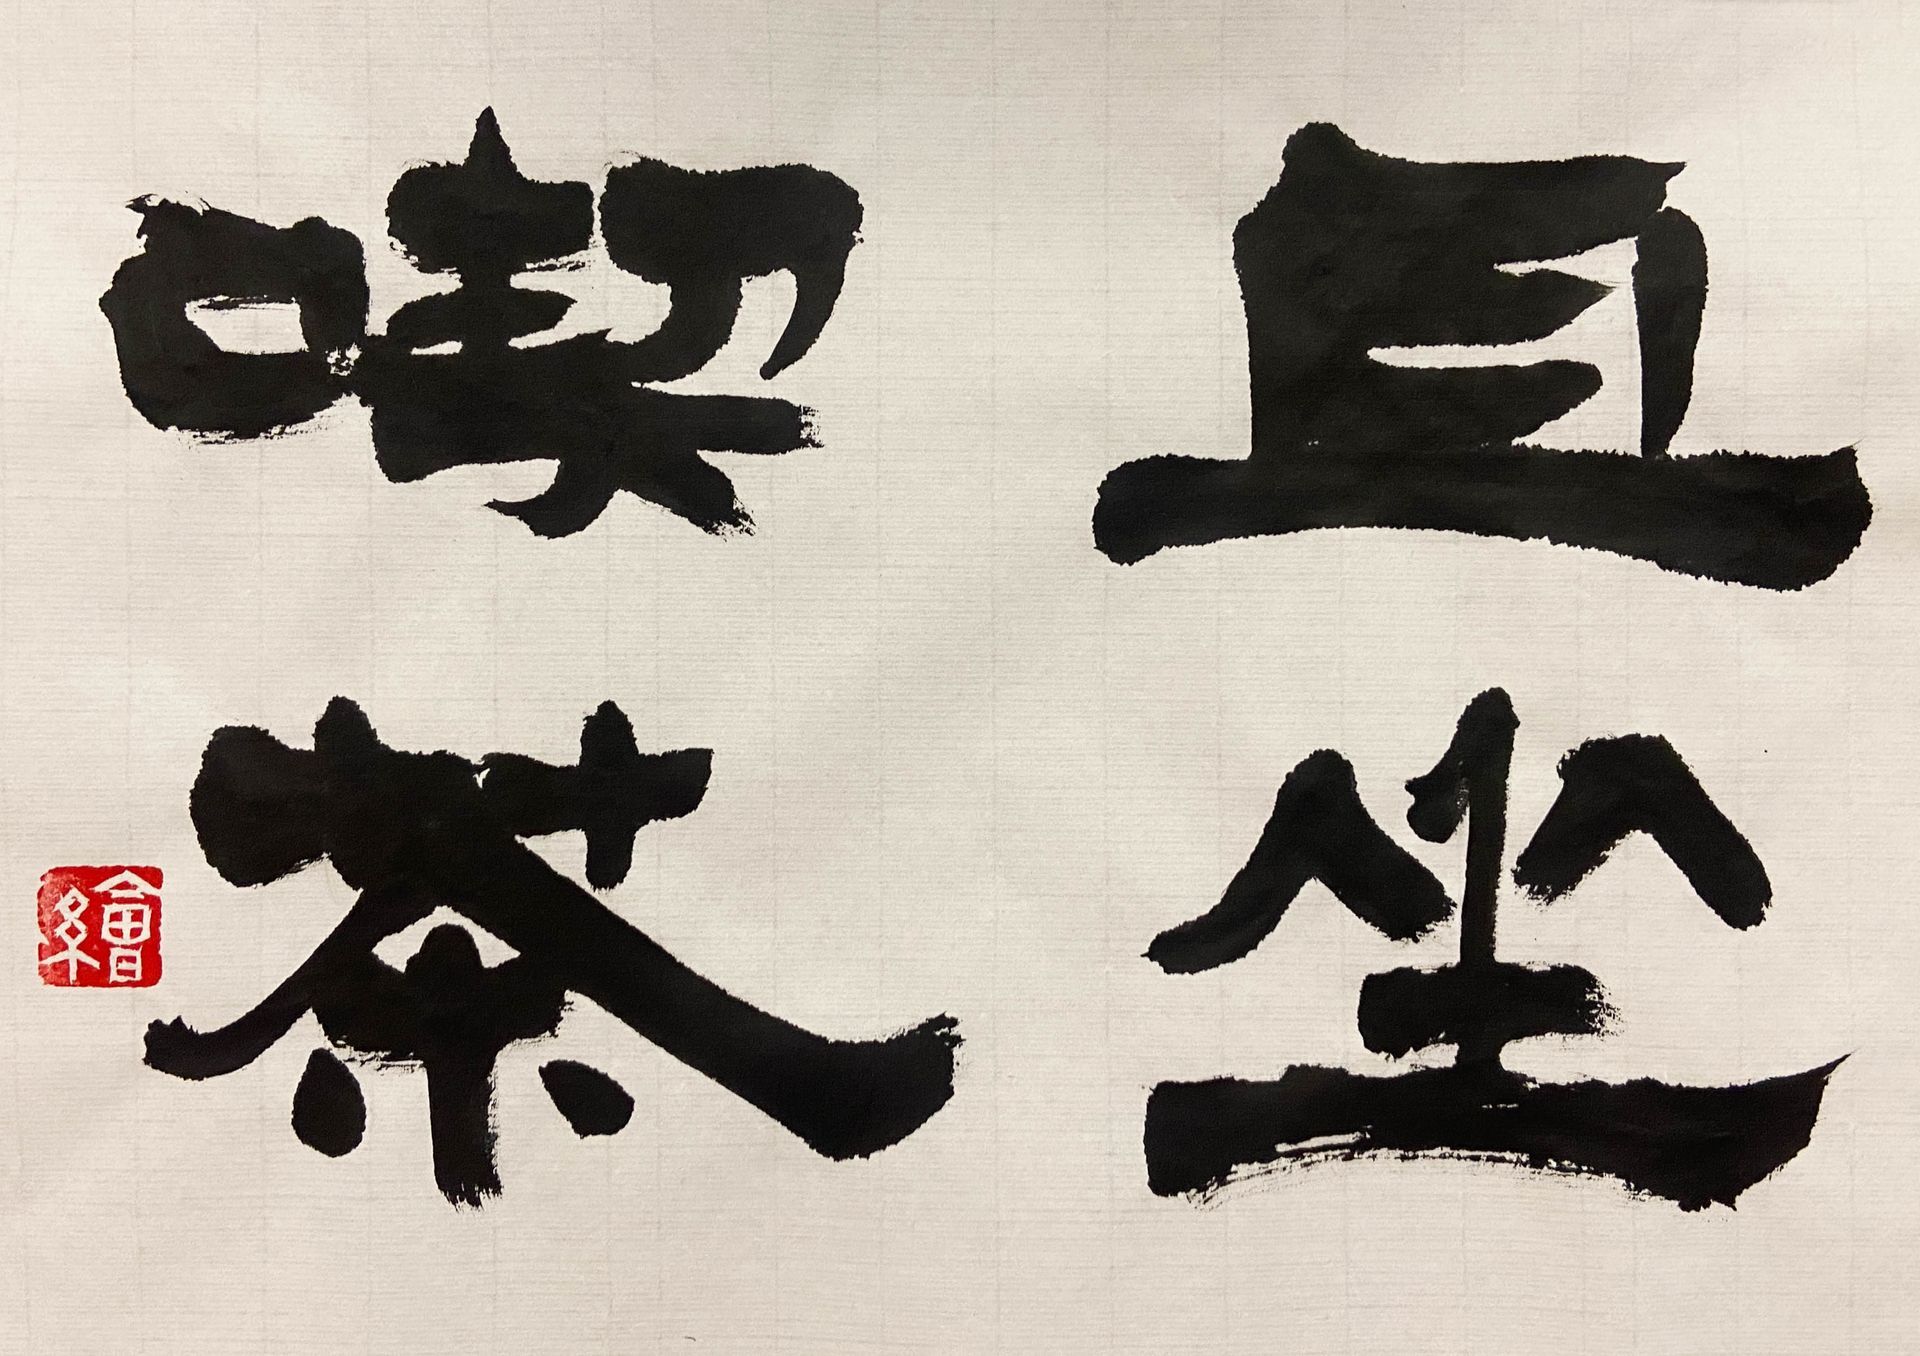 且坐
喫茶
繪